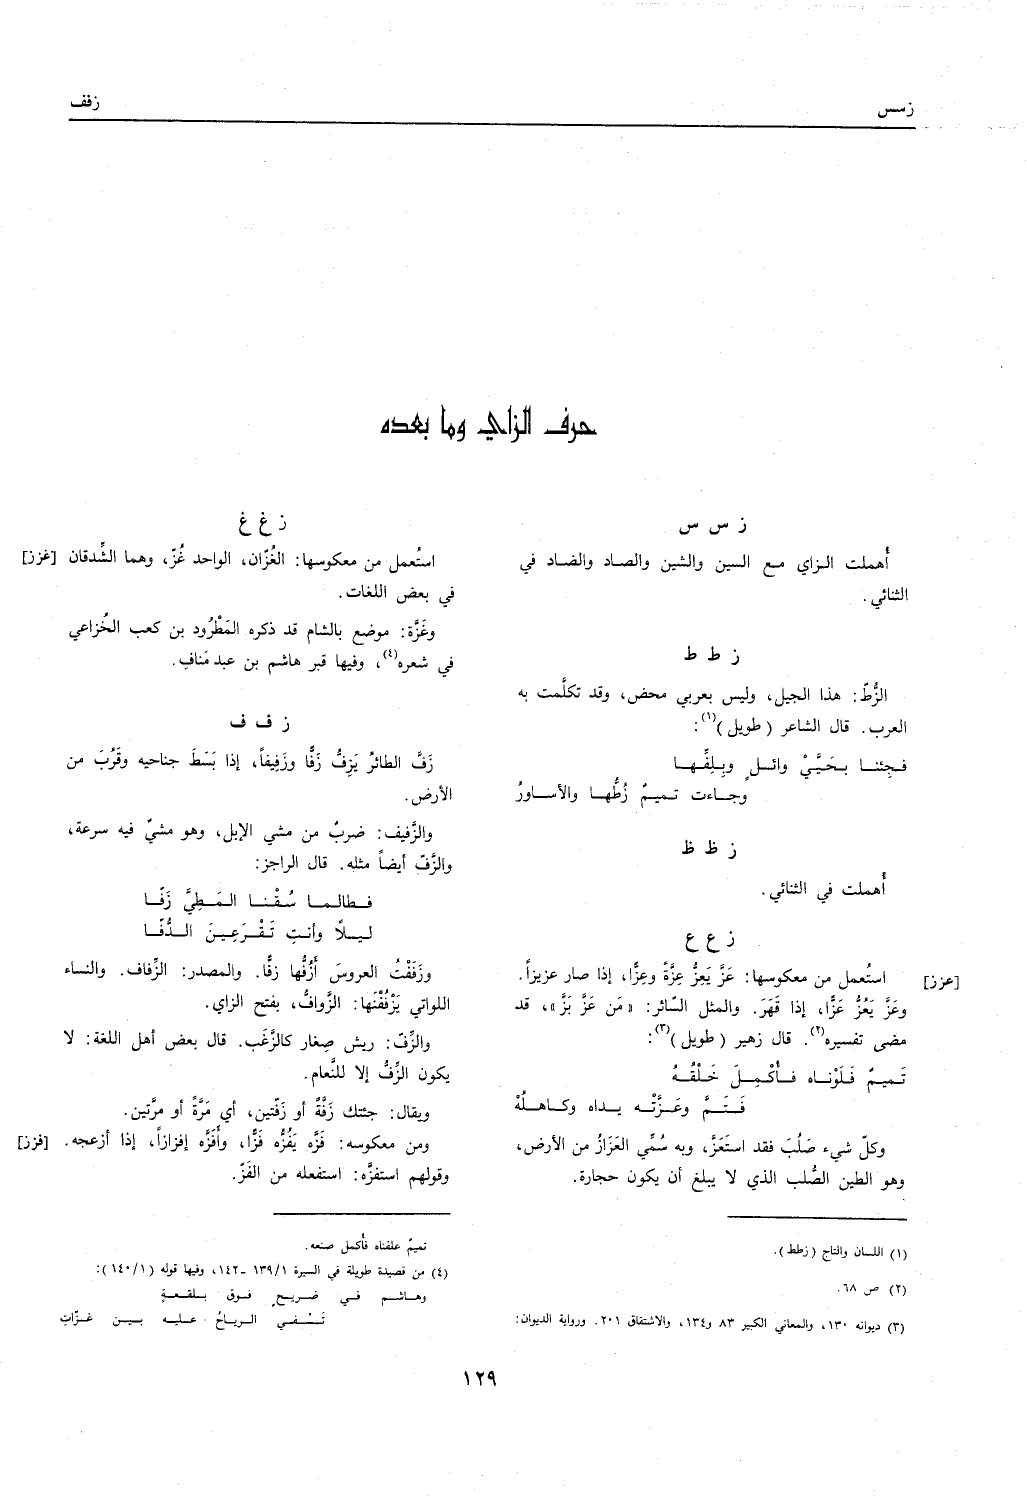 زسس
زفف
حرف الزاي وما بعده
ز س س
أُهملت الزاي مع السين والشين والصاد والضاد في
الثنائي.
ز ط ط
الزُّطّ: هذا الجيل، وليس بعربي محض، وقد تكلَّمت به
العرب. قال الشاعر (طويل)(١):
فجِئنا بحَيَّيْ وائلٍ وبِلِفِّها
وجاءت تميمٌ زُطُّها والأساورُ
ز ظ ظ
أُهملت في الثنائي.
ز ع ع
[عزز] استُعمل من معكوسها: عَزَّ يَعِزُّ عِزَّةً وعِزًّا، إذا صار عزيزاً.
وعَزَّ يَعُزُّ عَزًّا، إذا قَهَرَ. والمثل السّائر: «مَن عَزَّ بَزَّ»، قد
مضى تفسيره(٢). قال زهير (طويل)(٣):
تَميمٌ فَلَوْناه فأُكْمِلَ خَلْقُهُ
فَتَمَّ وعَزَّتْه يداه وكاهلُهْ
وكلّ شيء صَلُبَ فقد استَعَزَّ، وبه سُمِّي العَزَازُ من الأرض،
وهو الطين الصُّلب الذي لا يبلغ أن يكون حجارة.
(١) اللسان والتاج (زطط).
(٢) ص ٦٨.
(٣) ديوانه ١٣٠، والمعاني الكبير ٨٣ و١٣٤، والاشتقاق ٢٠١. ورواية الديوان:
ز غ غ
استُعمل من معكوسها: الغُزّان، الواحد غُزّ، وهما الشِّدقان [غزز]
في بعض اللغات.
وغَزَّة: موضع بالشام قد ذكره المَطْرُود بن كعب الخُزاعي
في شعره(٤)، وفيها قبر هاشم بن عبد مَناف.
ز ف ف
زَفَّ الطائرُ يَزِفُّ زَفًّا وزَفِيفاً، إذا بَسَطَ جناحيه وقَرُبَ من
الأرض.
والزَّفيف: ضربٌ من مشي الإبل، وهو مشيٌ فيه سرعة،
والزَّفّ أيضاً مثله. قال الراجز:
فطالما سُقْنا المَطِيَّ زَفّا
ليلًا وأنتِ تَقْرَعِينَ الدُّفّا
وزَفَفْتُ العروسَ أَزُفُّها زفًّا. والمصدر: الزِّفاف. والنساء
اللواتي يَزْفُفْنَها: الزَّوافُّ، بفتح الزاي.
والزِّفّ: ريش صِغار كالزَّغَب. قال بعض أهل اللغة: لا
يكون الزِّفُّ إلا للنَّعام.
ويقال: جئتك زَفَّةً أو زَفّتين، أي مَرَّةً أو مرَّتين.
ومن معكوسه: فَزَّه يَفُزُّه فَزًّا، وأَفَزَّه إفزازاً، إذا أزعجه. [فزز]
وقولهم استفزَّه: استفعله من الفَزّ.
تميمٌ علفناه فأُكمل صنعه.
(٤) من قصيدة طويلة في السيرة ١٣٩/١ -١٤٢، وفيها قوله (١٤٠/١):
وهاشم في ضريحٍ فوق بلقعةٍ
تَسْفي الرياحُ عليه بين غزّاتِ
١٢٩